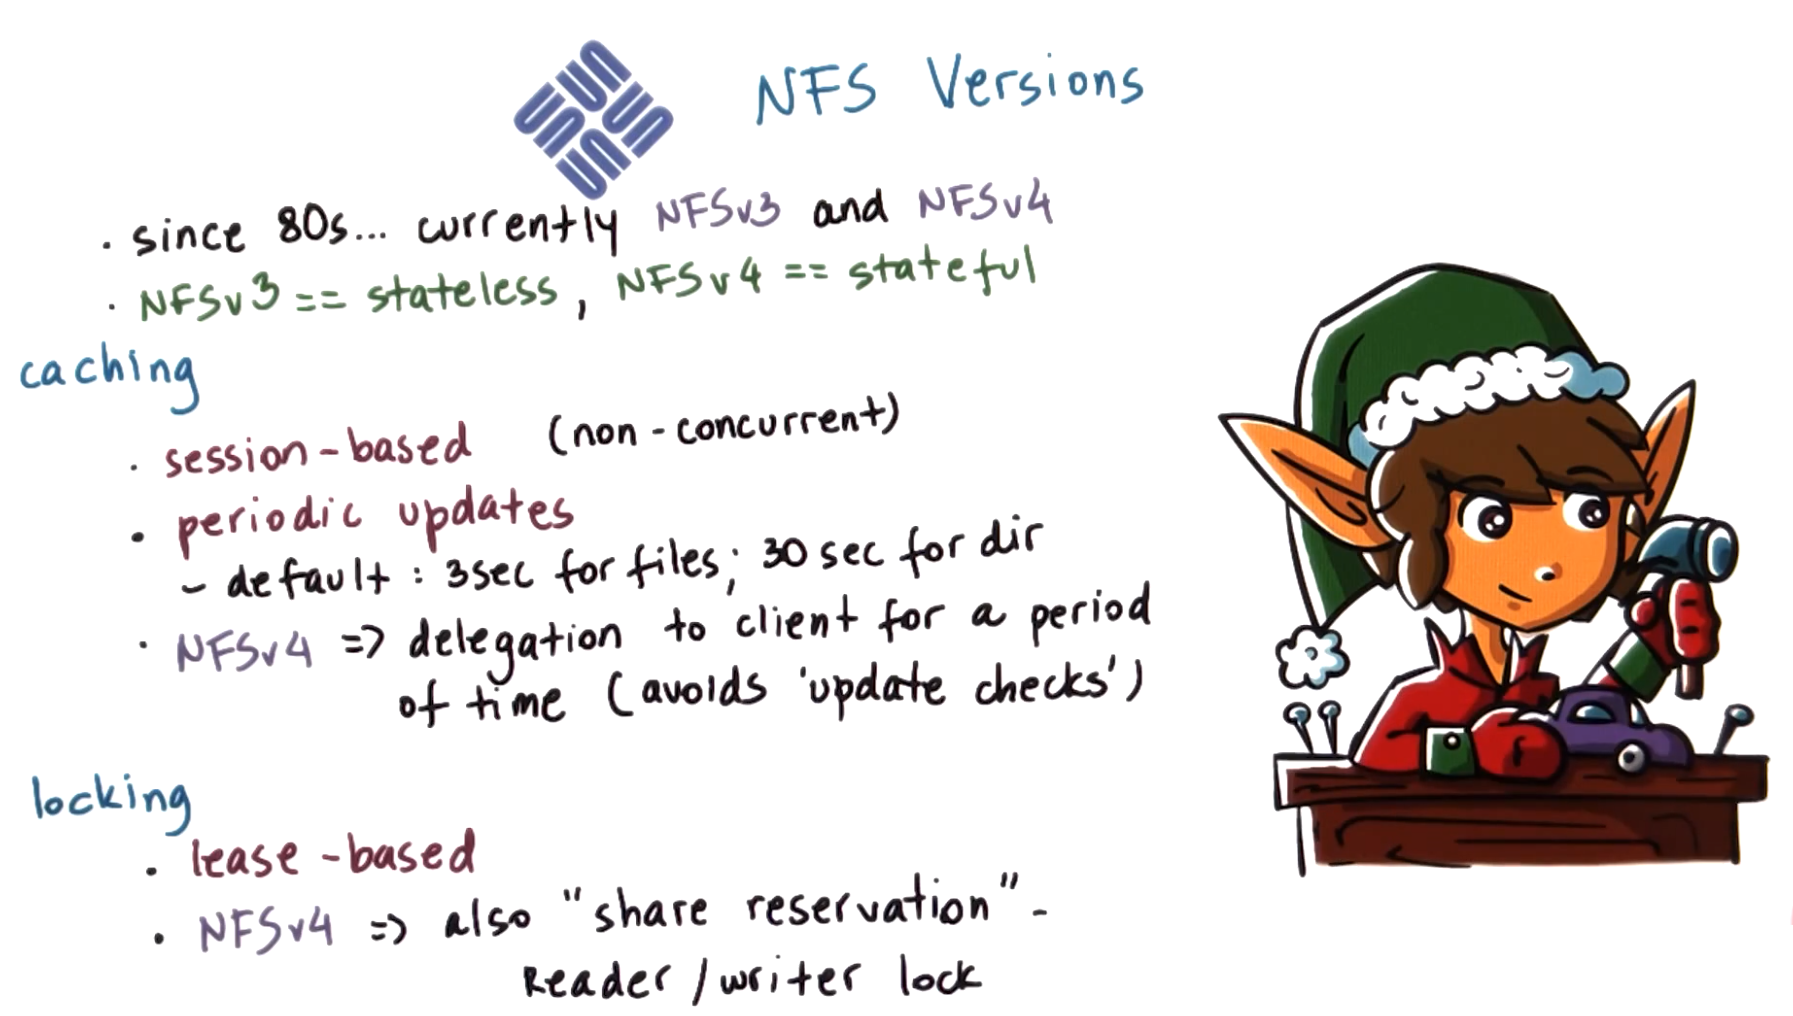 NFS Versions
• since 80s... currently NFSv3 and NFSv4
• NFSv3 == stateless, NFSv4 == stateful
caching
• session-based (non-concurrent)
• periodic updates
- default: 3sec for files; 30 sec for dir
• NFSv4 => delegation to client for a period
of time (avoids 'update checks')
locking
• lease-based
• NFSv4 => also "share reservation" -
Reader/writer lock